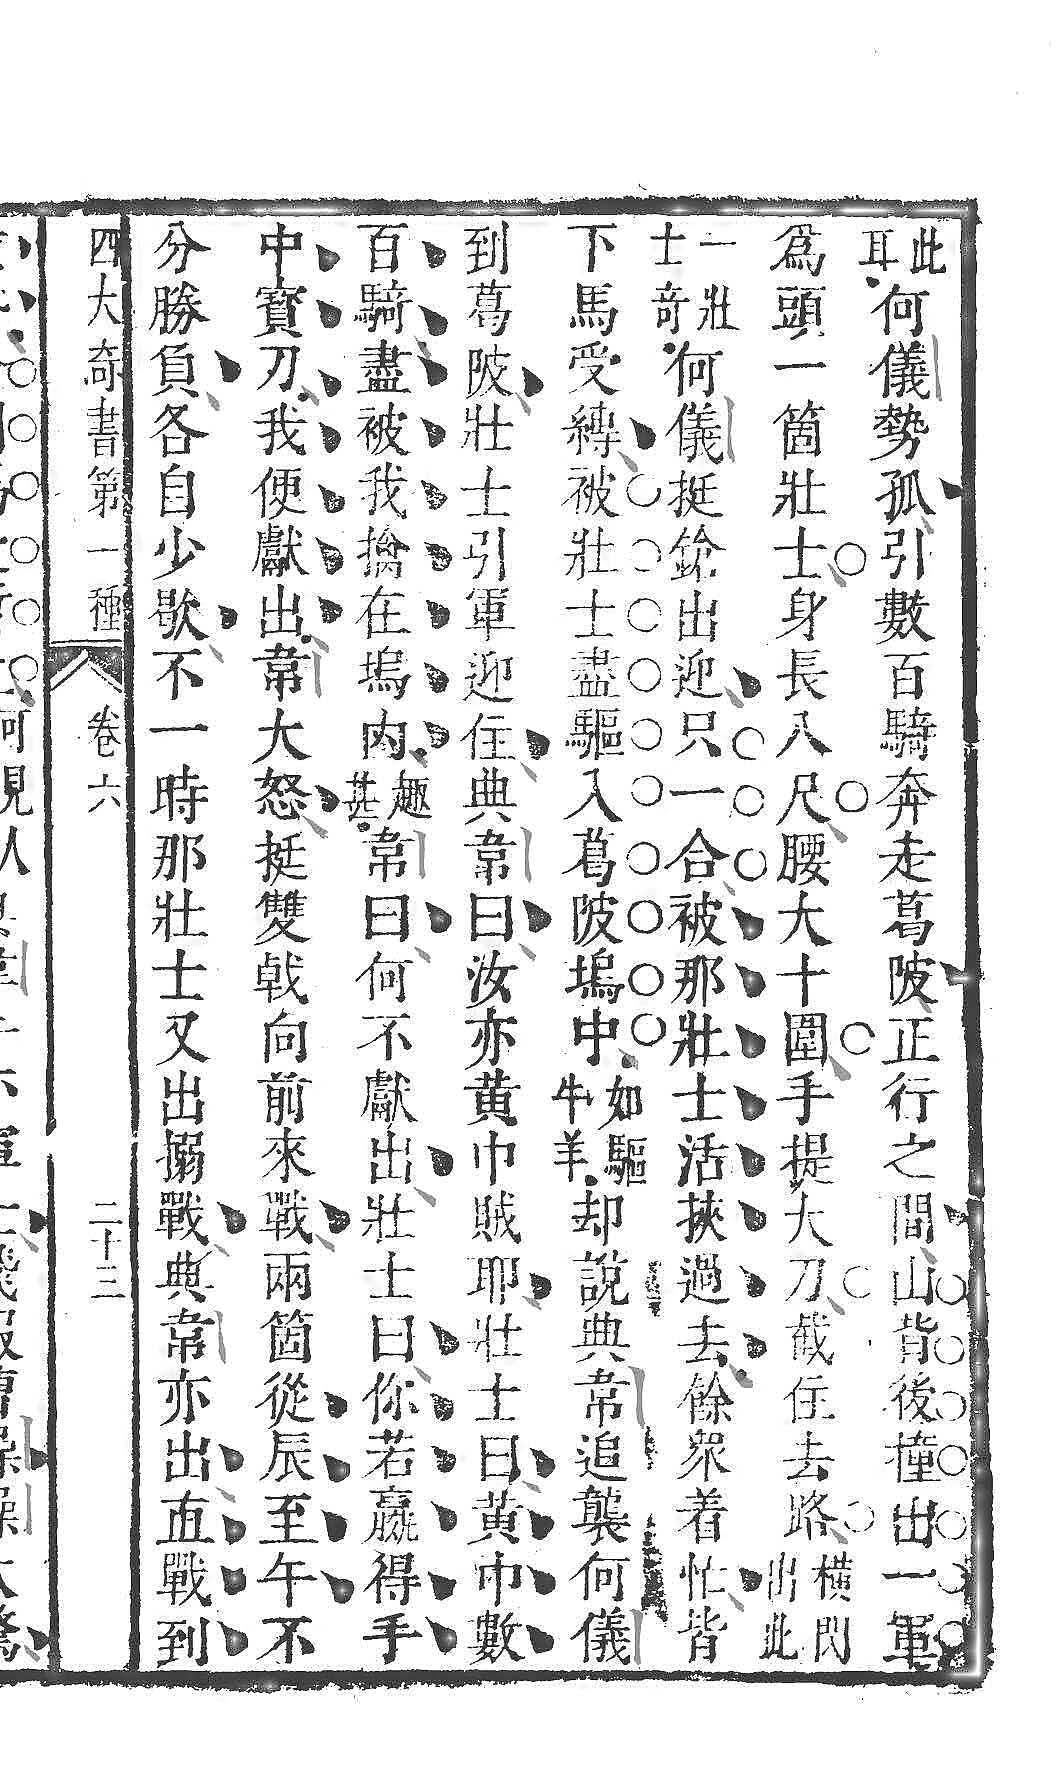 此耳何儀勢孤引數百騎奔走葛陂正行之間山背後撞出一軍
爲頭一箇壯士身長八尺腰大十圍手提大刀截住去路橫閃出此
一壯士奇何儀挺鎗出迎只一合被那壯士活挾過去餘衆着忙皆
下馬受縛被壯士盡驅入葛陂塢中如驅牛羊却說典韋追襲何儀
到葛陂壯士引軍迎住典韋曰汝亦黃巾賊耶壯士曰黃巾數
百騎盡被我擒在塢內趣甚韋曰何不獻出壯士曰你若贏得手
中寶刀我便獻出韋大怒挺雙戟向前來戰兩箇從辰至午不
分勝負各自少歇不一時那壯士又出搦戰典韋亦出直戰到
四大奇書第一種 卷六 二十三